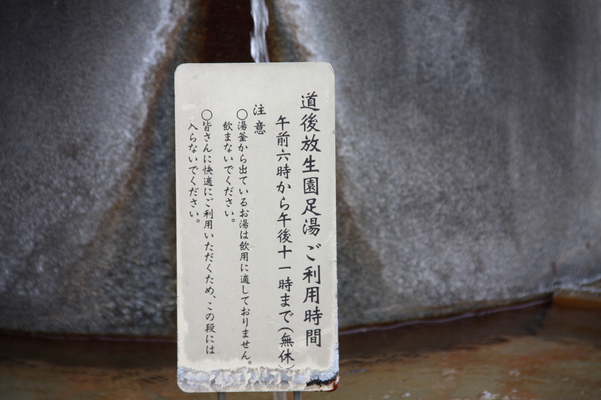 道後放生園足湯ご利用時間
午前六時から午後十一時まで(無休)
注意
○湯釜から出ているお湯は飲用に適しておりません。
飲まないでください。
○皆さんに快適にご利用いただくため、この段には
入らないでください。